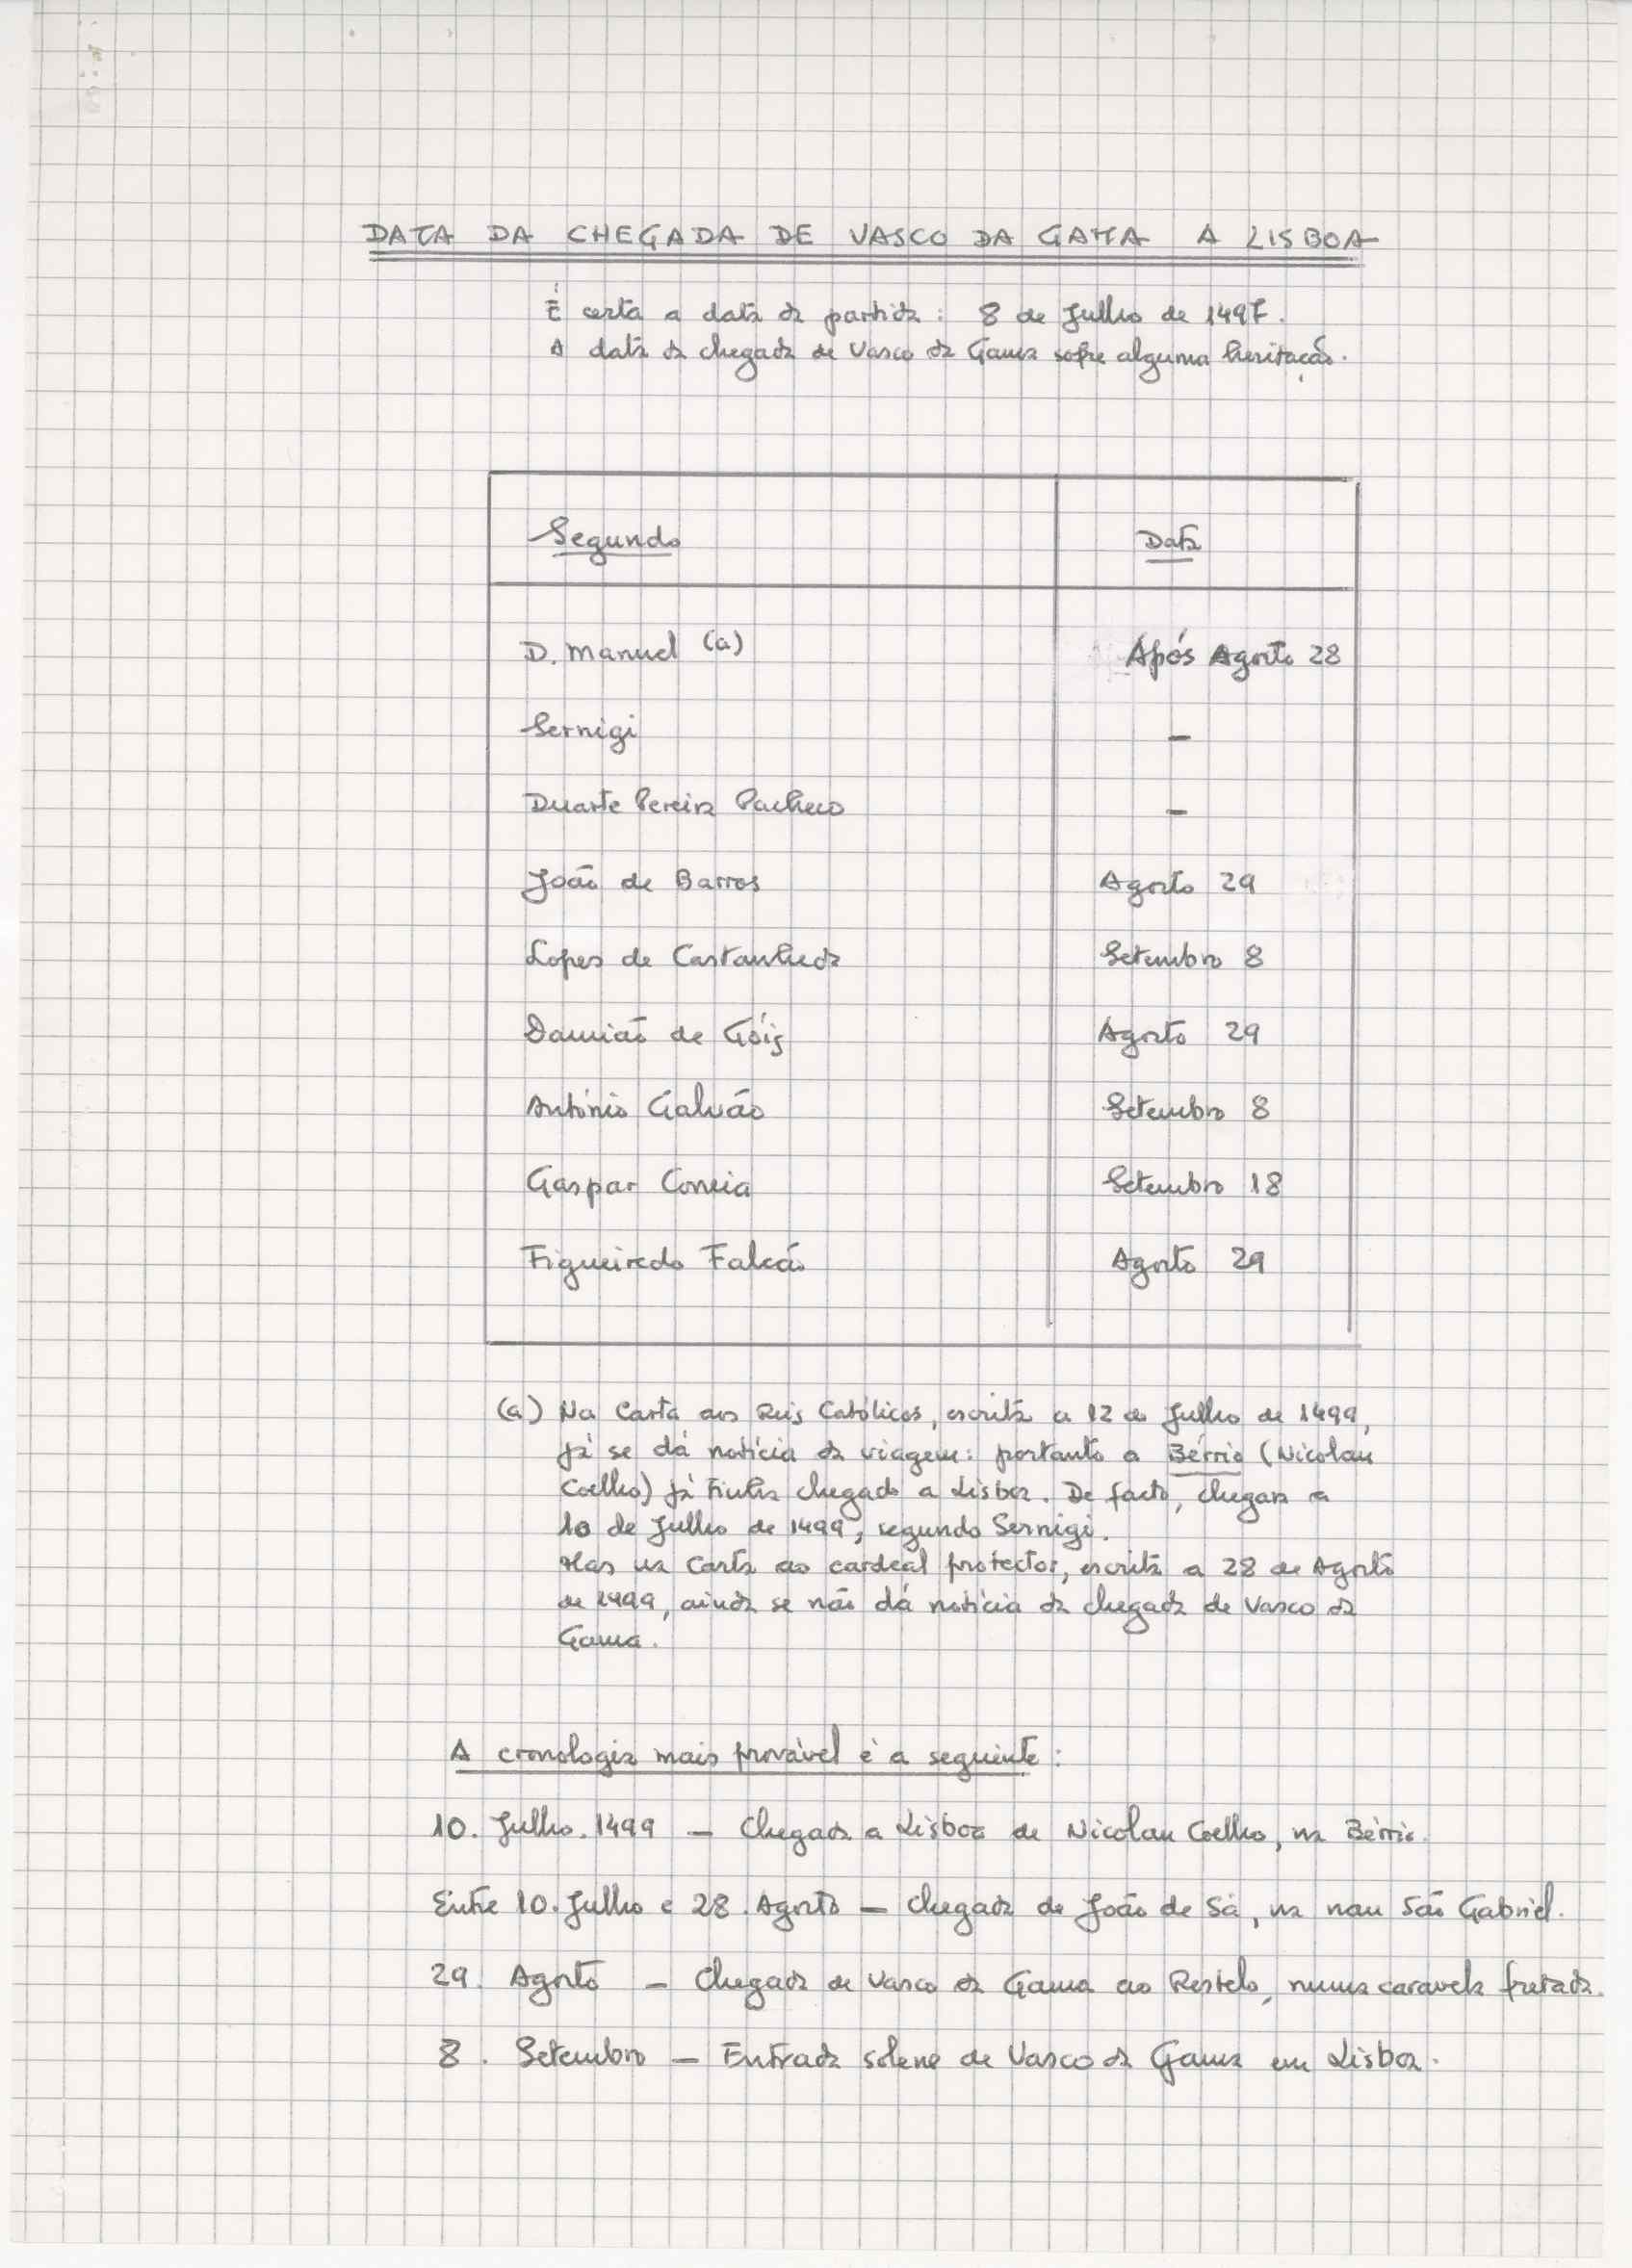 DATA DA CHEGADA DE VASCO DA GAMA A LISBOA
É certa a data da partida: 8 de Julho de 1497.
A data da chegada de Vasco da Gama sofre alguma hesitação.
Segundo Data
D. Manuel (a) Após Agosto 28
Sernigi –
Duarte Pereira Pacheco –
João de Barros Agosto 29
Lopes de Castanheda Setembro 8
Damião de Góis Agosto 29
António Galvão Setembro 8
Gaspar Correia Setembro 18
Figueiredo Falcão Agosto 29
(a) Na Carta aos Reis Católicos, escrita a 12 de Julho de 1499,
já se dá notícia da viagem: portanto a Bérrio (Nicolau
Coelho) já tinha chegado a Lisboa. De facto, chegara a
10 de Julho de 1499, segundo Sernigi.
Mas na Carta ao cardeal protector, escrita a 28 de Agosto
de 1499, ainda se não dá notícia da chegada de Vasco da
Gama.
A cronologia mais provável é a seguinte:
10. Julho. 1499 – Chegada a Lisboa de Nicolau Coelho, na Bérrio.
Entre 10. Julho e 28. Agosto – Chegada de João de Sá, na nau São Gabriel.
29. Agosto – Chegada de Vasco da Gama ao Restelo, numa caravela fretada.
8. Setembro – Entrada solene de Vasco da Gama em Lisboa.